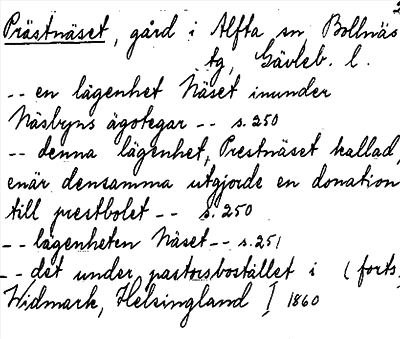 2
Prästnäset, gård i Alfta sn, Bollnäs
tg, Gävleb. l.
-- en lägenhet Näset inunder
Näsbyns ägotegar -- s. 250
-- denna lägenhet, Prestnäset kallad,
enär densamma utgjorde en donation
till prestbolet -- s. 250
-- lägenheten Näset -- s. 251
-- det under pastorsbostället i (forts.
Widmark, Helsingland I 1860